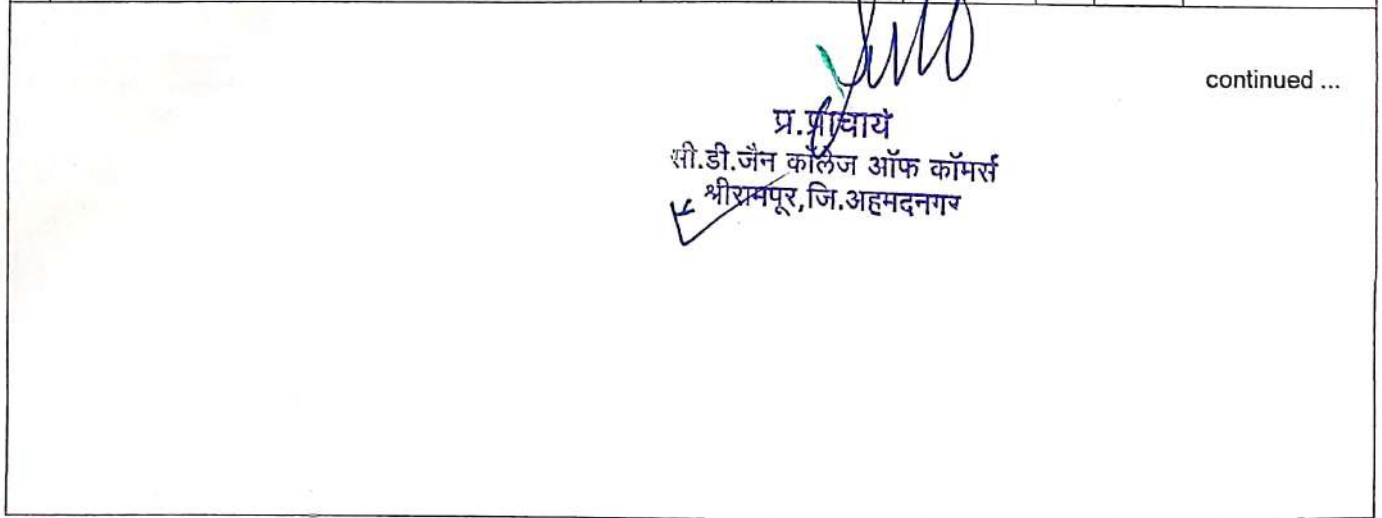 continued ...
प्र.प्राचार्य
सी.डी.जैन कॉलेज ऑफ कॉमर्स
श्रीरामपूर,जि.अहमदनगर